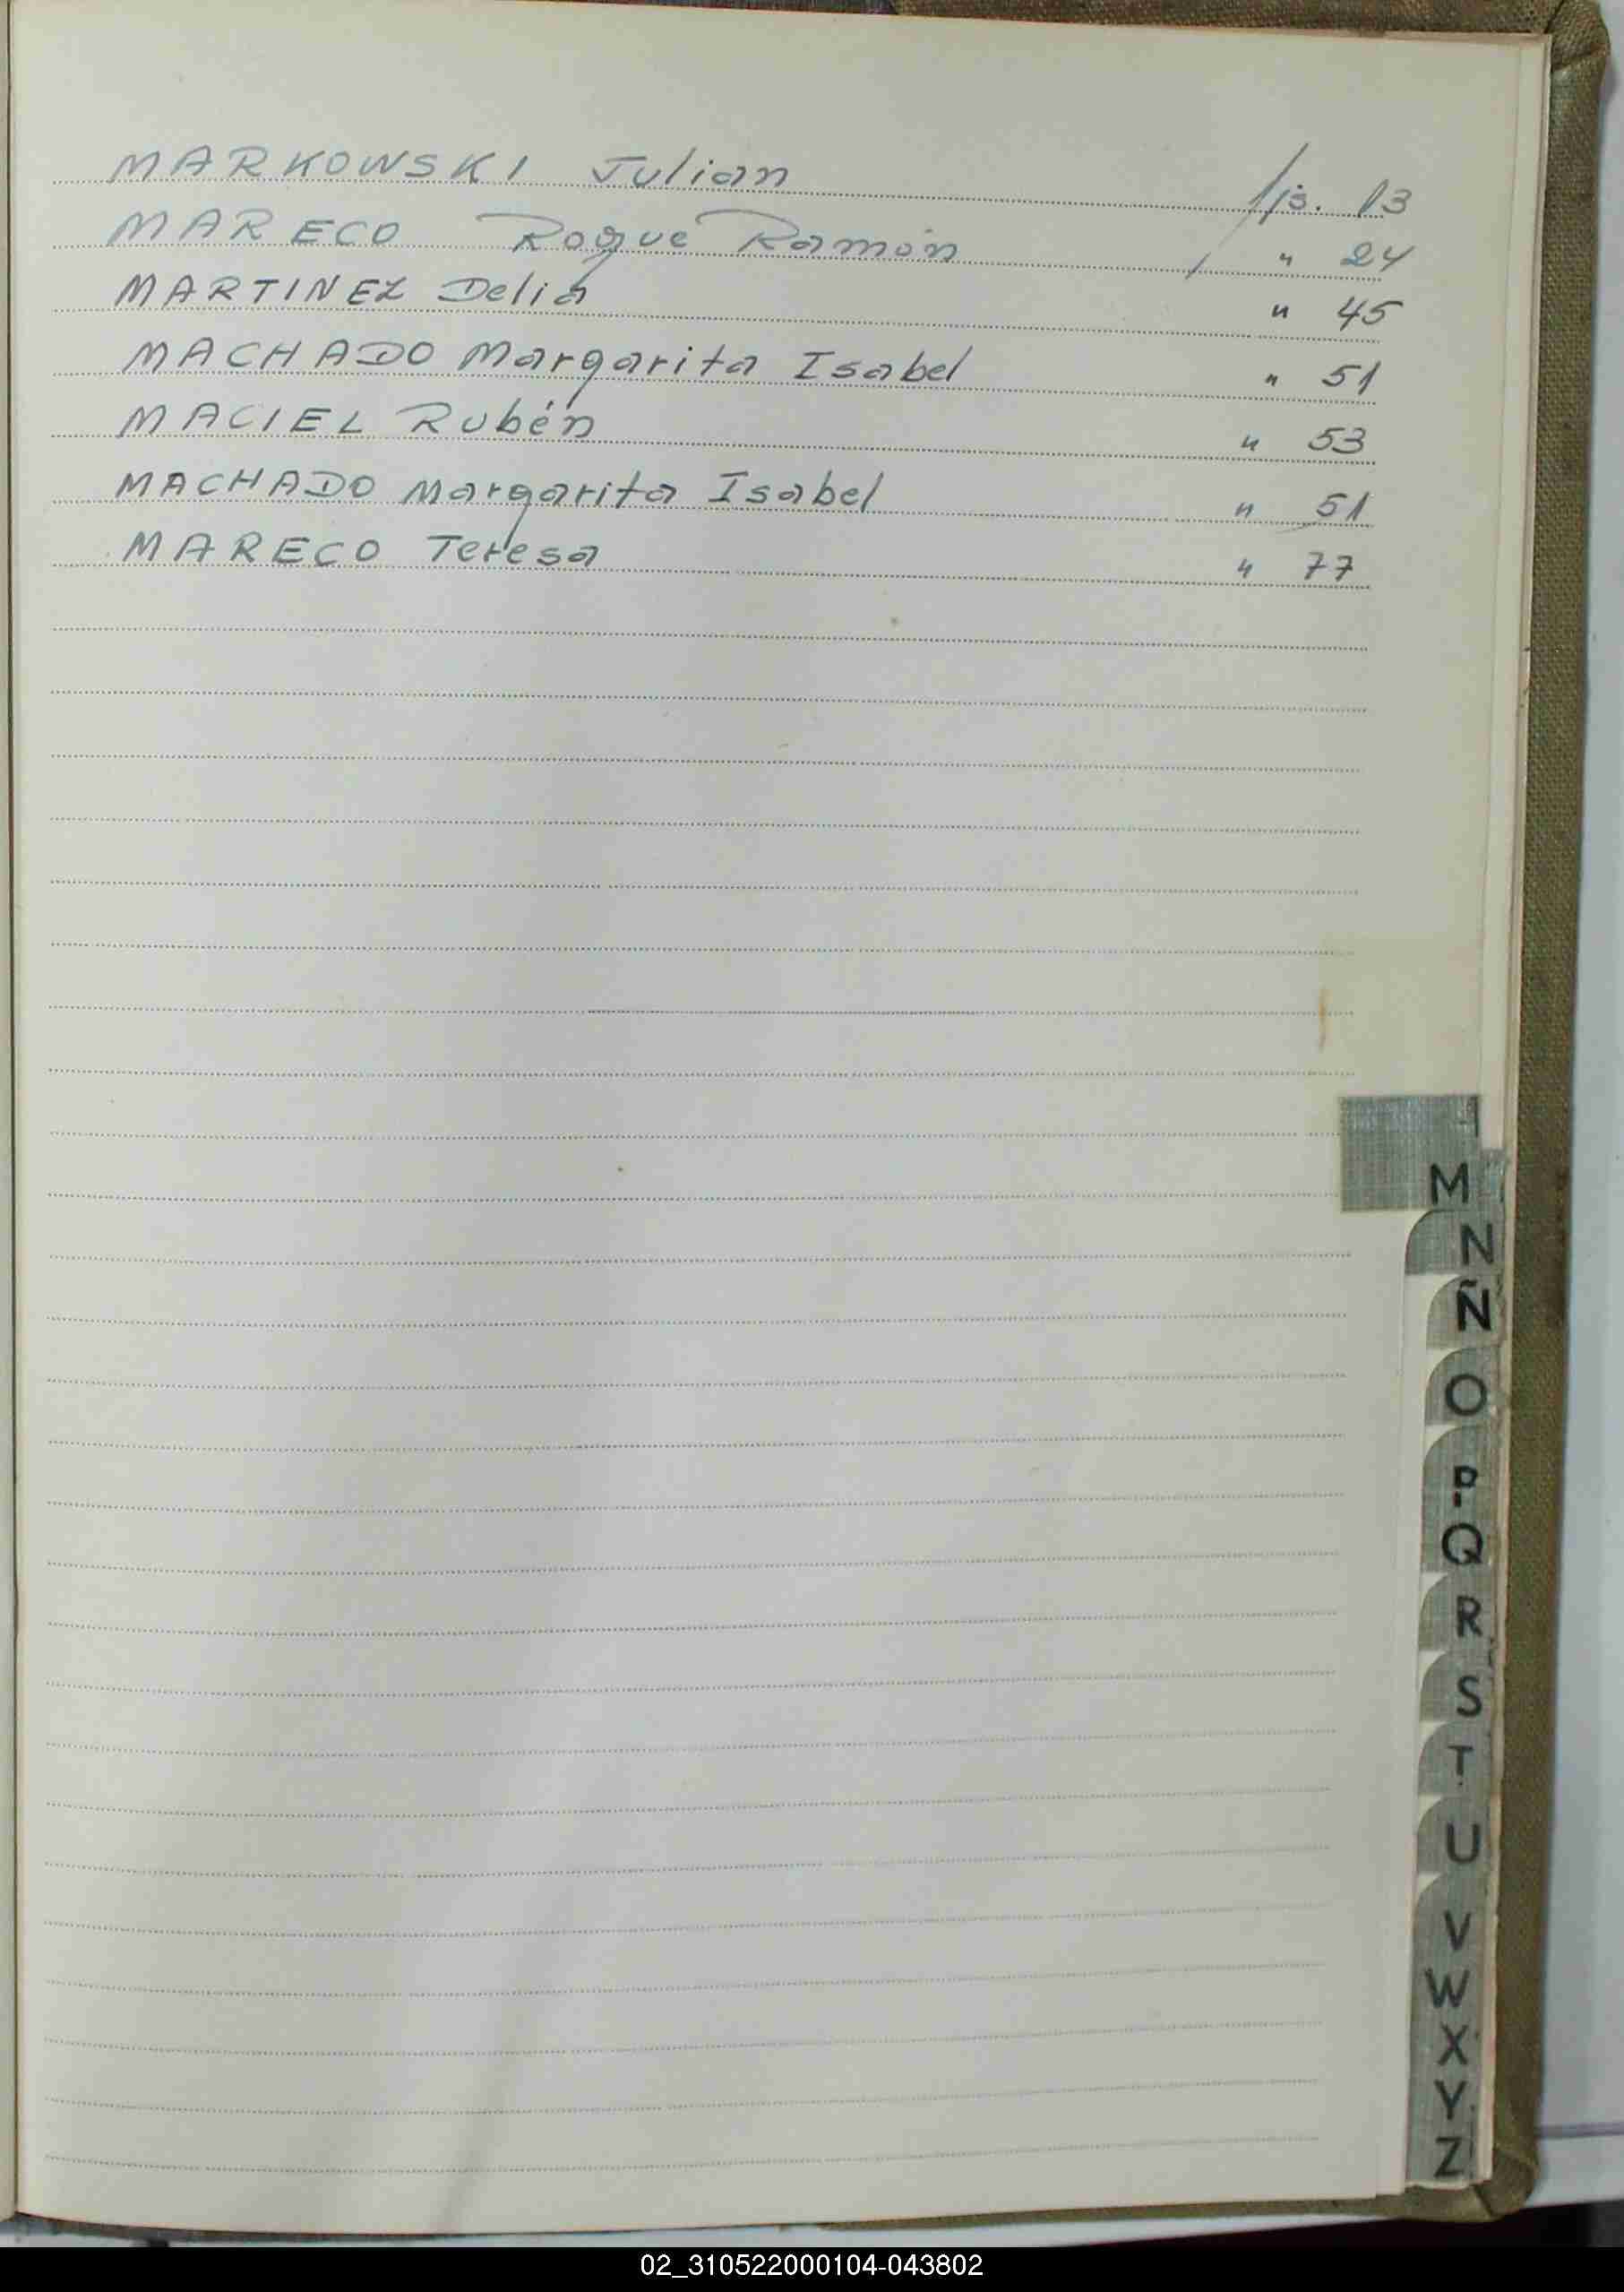 MARKOWSKI Julian fjs. 13
MARECO Roque Ramón " 24
MARTINEZ Delia " 45
MACHADO Margarita Isabel " 51
MACIEL Rubén " 53
MACHADO Margarita Isabel " 51
MARECO Teresa " 77
M
N
Ñ
O
P
Q
R
S
T
U
V
W
X
Y
Z
02_310522000104-043802